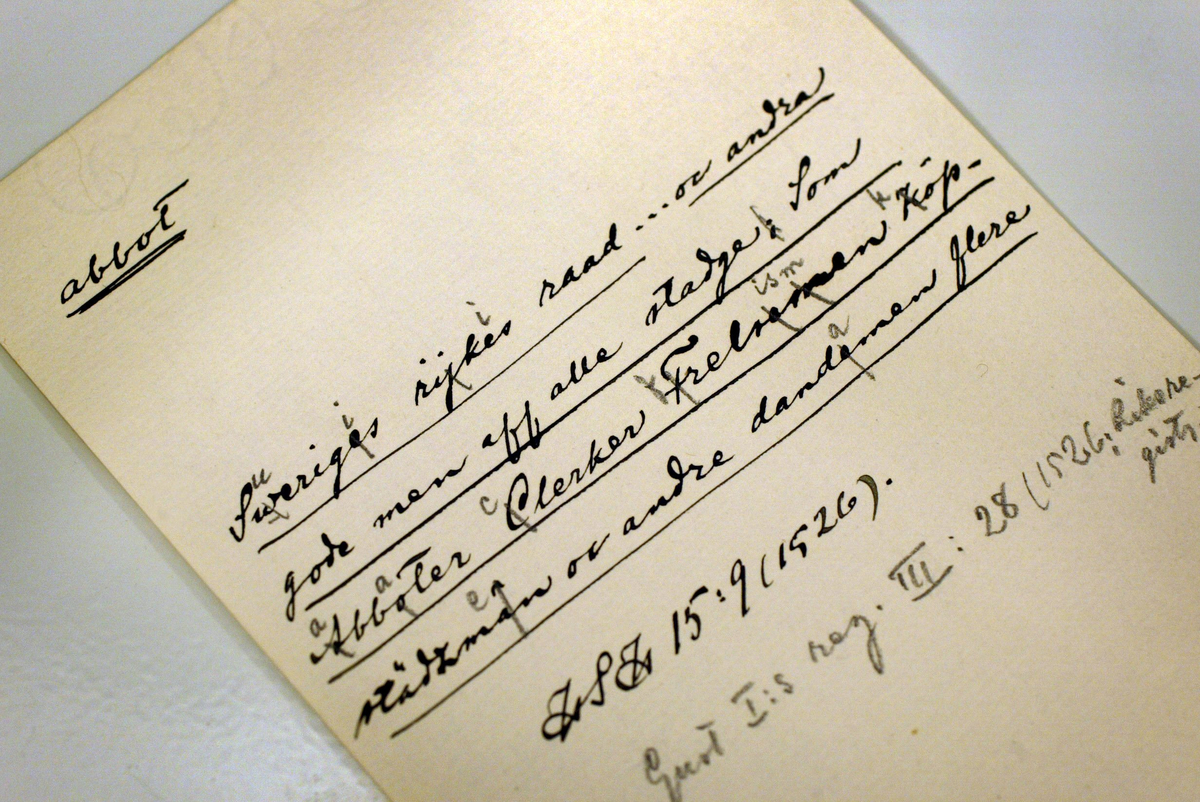 abbot
Sweriges rijkes raad ... oc andra
gode men aff alle stadge; Som
Abboter Clerker Frelsemen Köp-
städzmän oc andre dandemen flere
HSH 15: 9 (1526).
Gust I:s reg. III: 28 (1526; Riksre-
gistr.